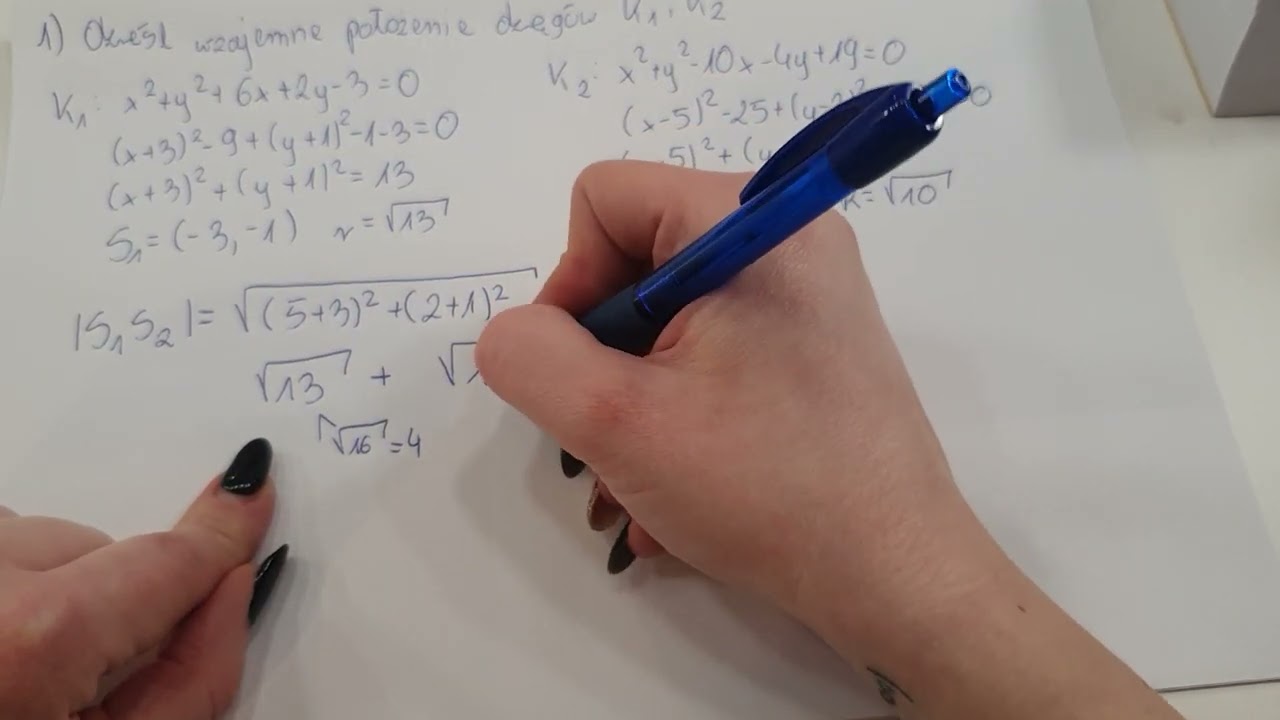 1) Określ wzajemne położenie okręgów K₁ i K₂
K₁: x²+y²+6x+2y-3=0
(x+3)²-9+(y+1)²-1-3=0
(x+3)²+(y+1)²=13
S₁=(-3,-1) r=√13
K₂: x²+y²-10x-4y+19=0
(x-5)²-25+(y-2)² 0
-5)²+(y
R=√10
|S₁S₂|=√(5+3)²+(2+1)²
√13 + √
√16=4